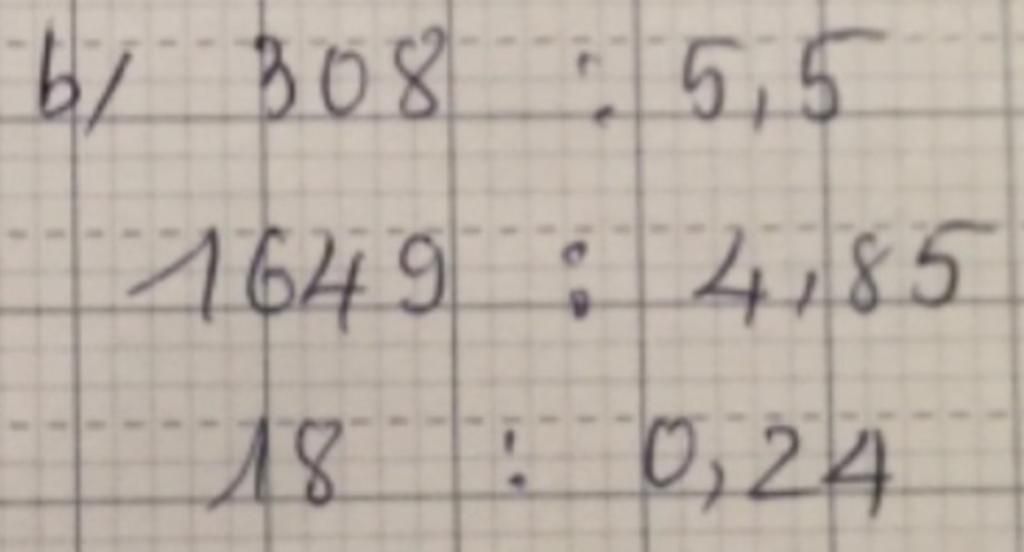 b/ 308 : 5,5
1649 : 4,85
18 : 0,24